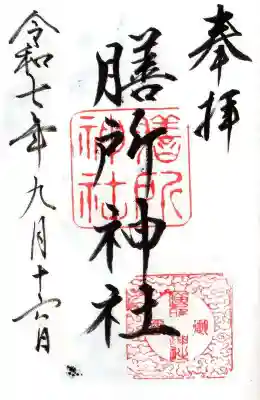 奉拝
膳所神社
令和七年九月十六日
膳所
神社